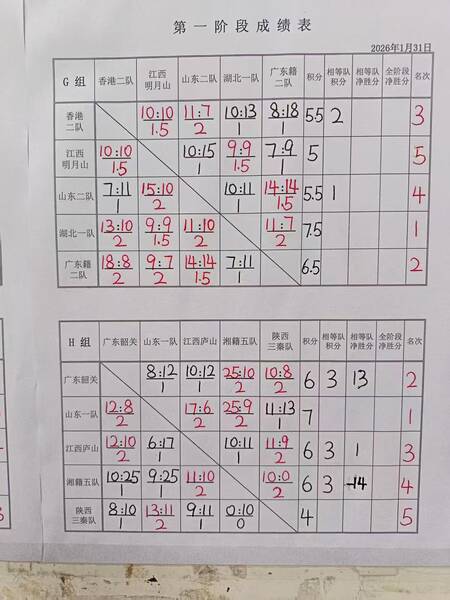 第一阶段成绩表
2026年1月31日
G 组 香港二队 江西明月山 山东二队 湖北一队 广东籍二队 积分 相等队积分 相等队净胜分 全阶段净胜分 名次
香港二队 10:10 1.5 11:7 2 10:13 1 8:18 1 5.5 2 3
江西明月山 10:10 1.5 10:15 1 9:9 1.5 7:9 1 5 5
山东二队 7:11 1 15:10 2 10:11 1 14:14 1.5 5.5 1 4
湖北一队 13:10 2 9:9 1.5 11:10 2 11:7 2 7.5 1
广东籍二队 18:8 2 9:7 2 14:14 1.5 7:11 1 6.5 2
H 组 广东韶关 山东一队 江西庐山 湘籍五队 陕西三秦队 积分 相等队积分 相等队净胜分 全阶段净胜分 名次
广东韶关 8:12 1 10:12 1 25:10 2 10:8 2 6 3 13 2
山东一队 12:8 2 17:6 2 25:9 2 11:13 1 7 1
江西庐山 12:10 2 6:17 1 10:11 1 11:9 2 6 3 1 3
湘籍五队 10:25 1 9:25 1 11:10 2 10:0 2 6 3 -14 4
陕西三秦队 8:10 1 13:11 2 9:11 1 0:10 0 4 5